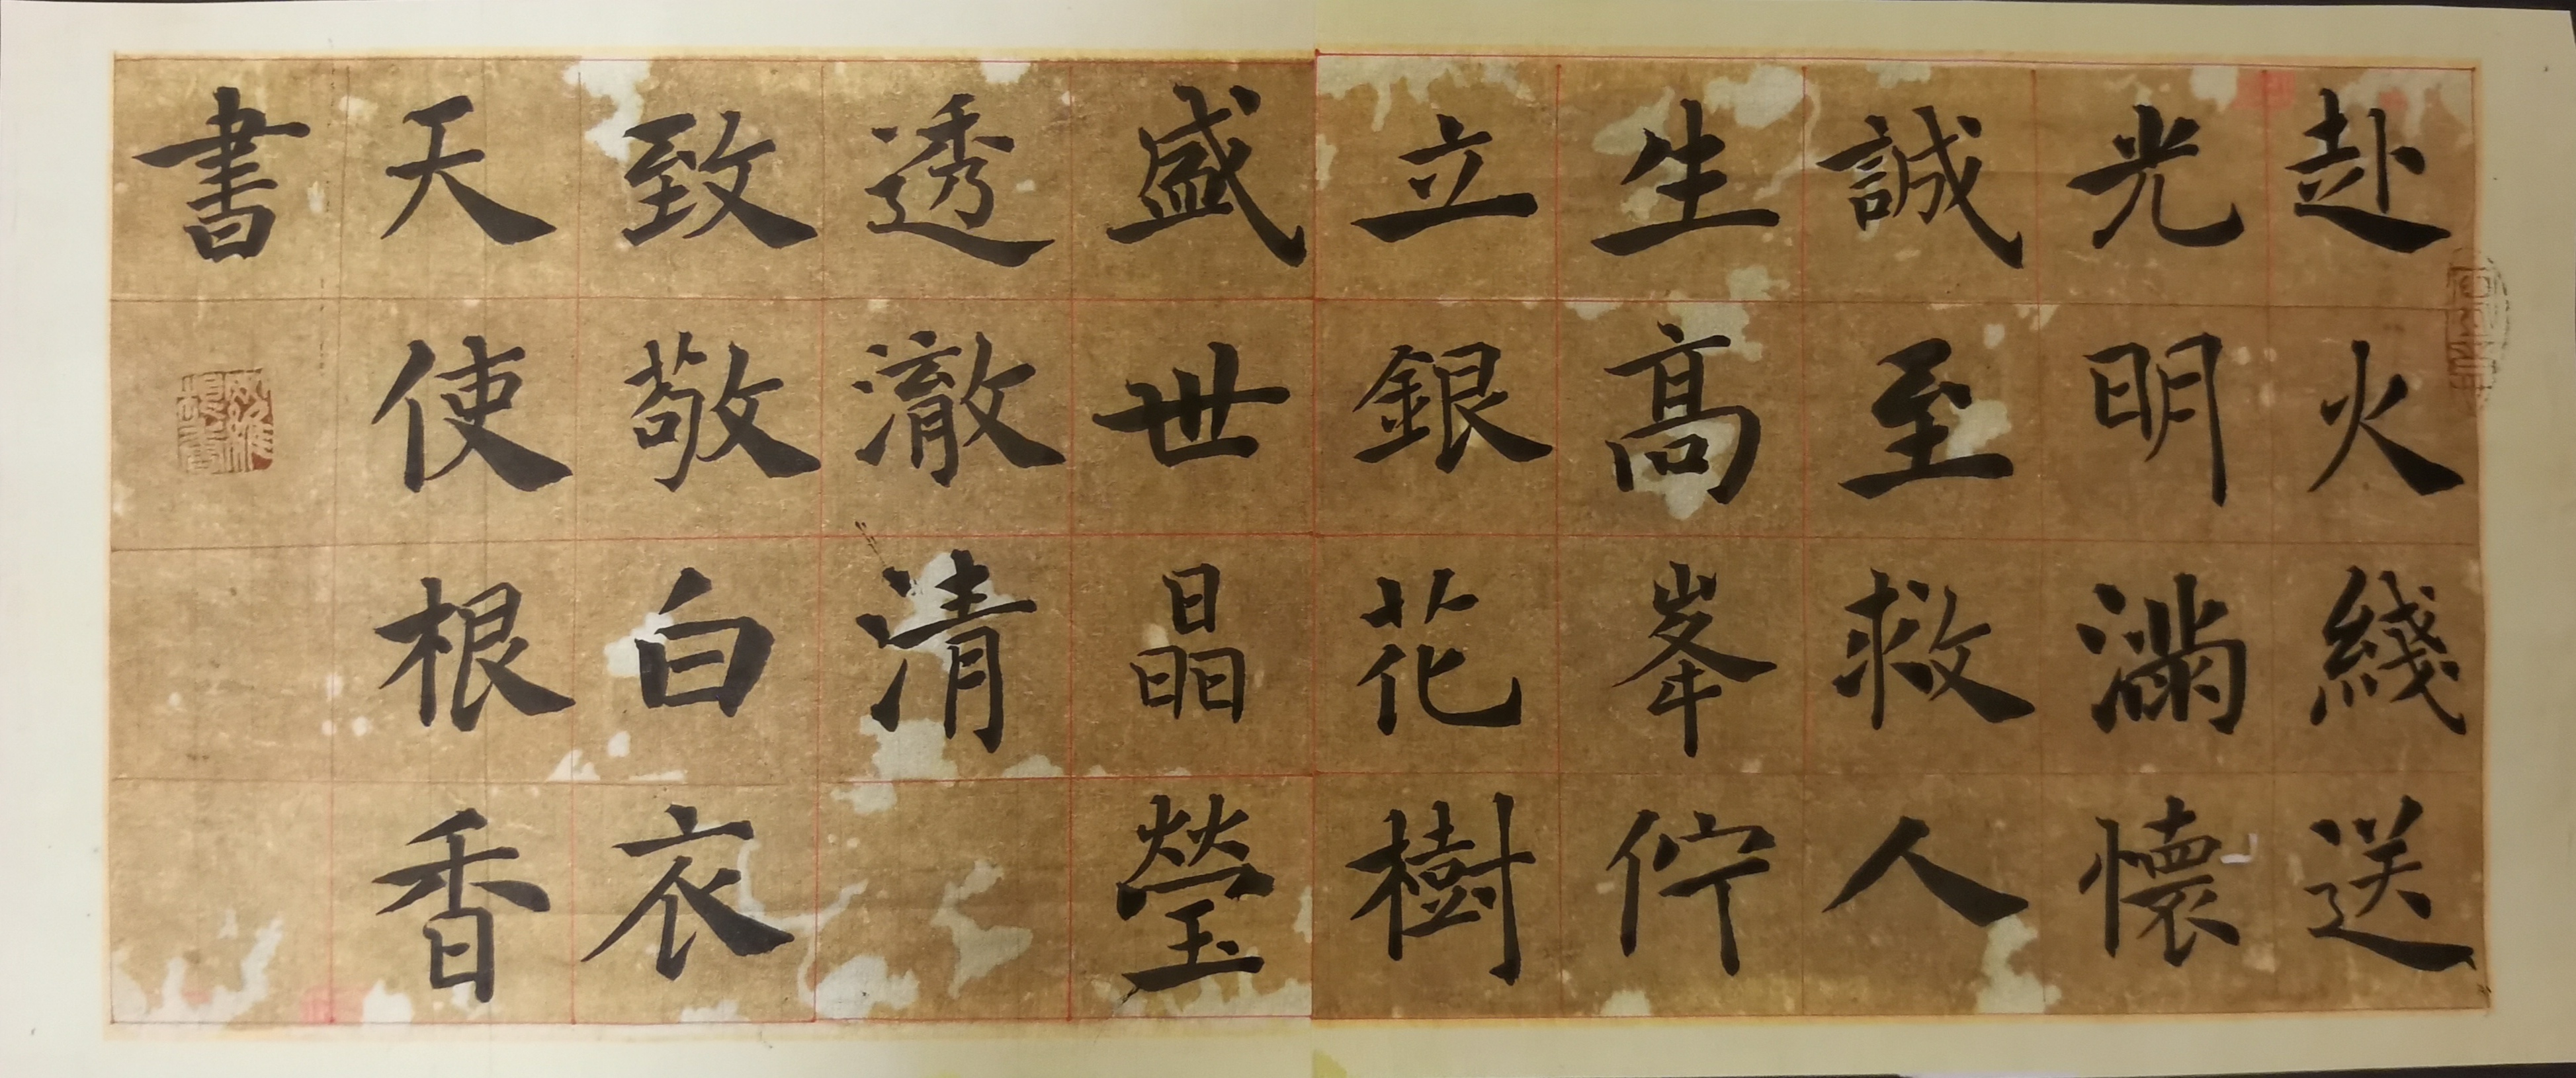 赴火綫送
光明滿懷
誠至救人
生高峯佇
立銀花樹
盛世晶瑩
透澈清
致敬白衣
天使根香
書